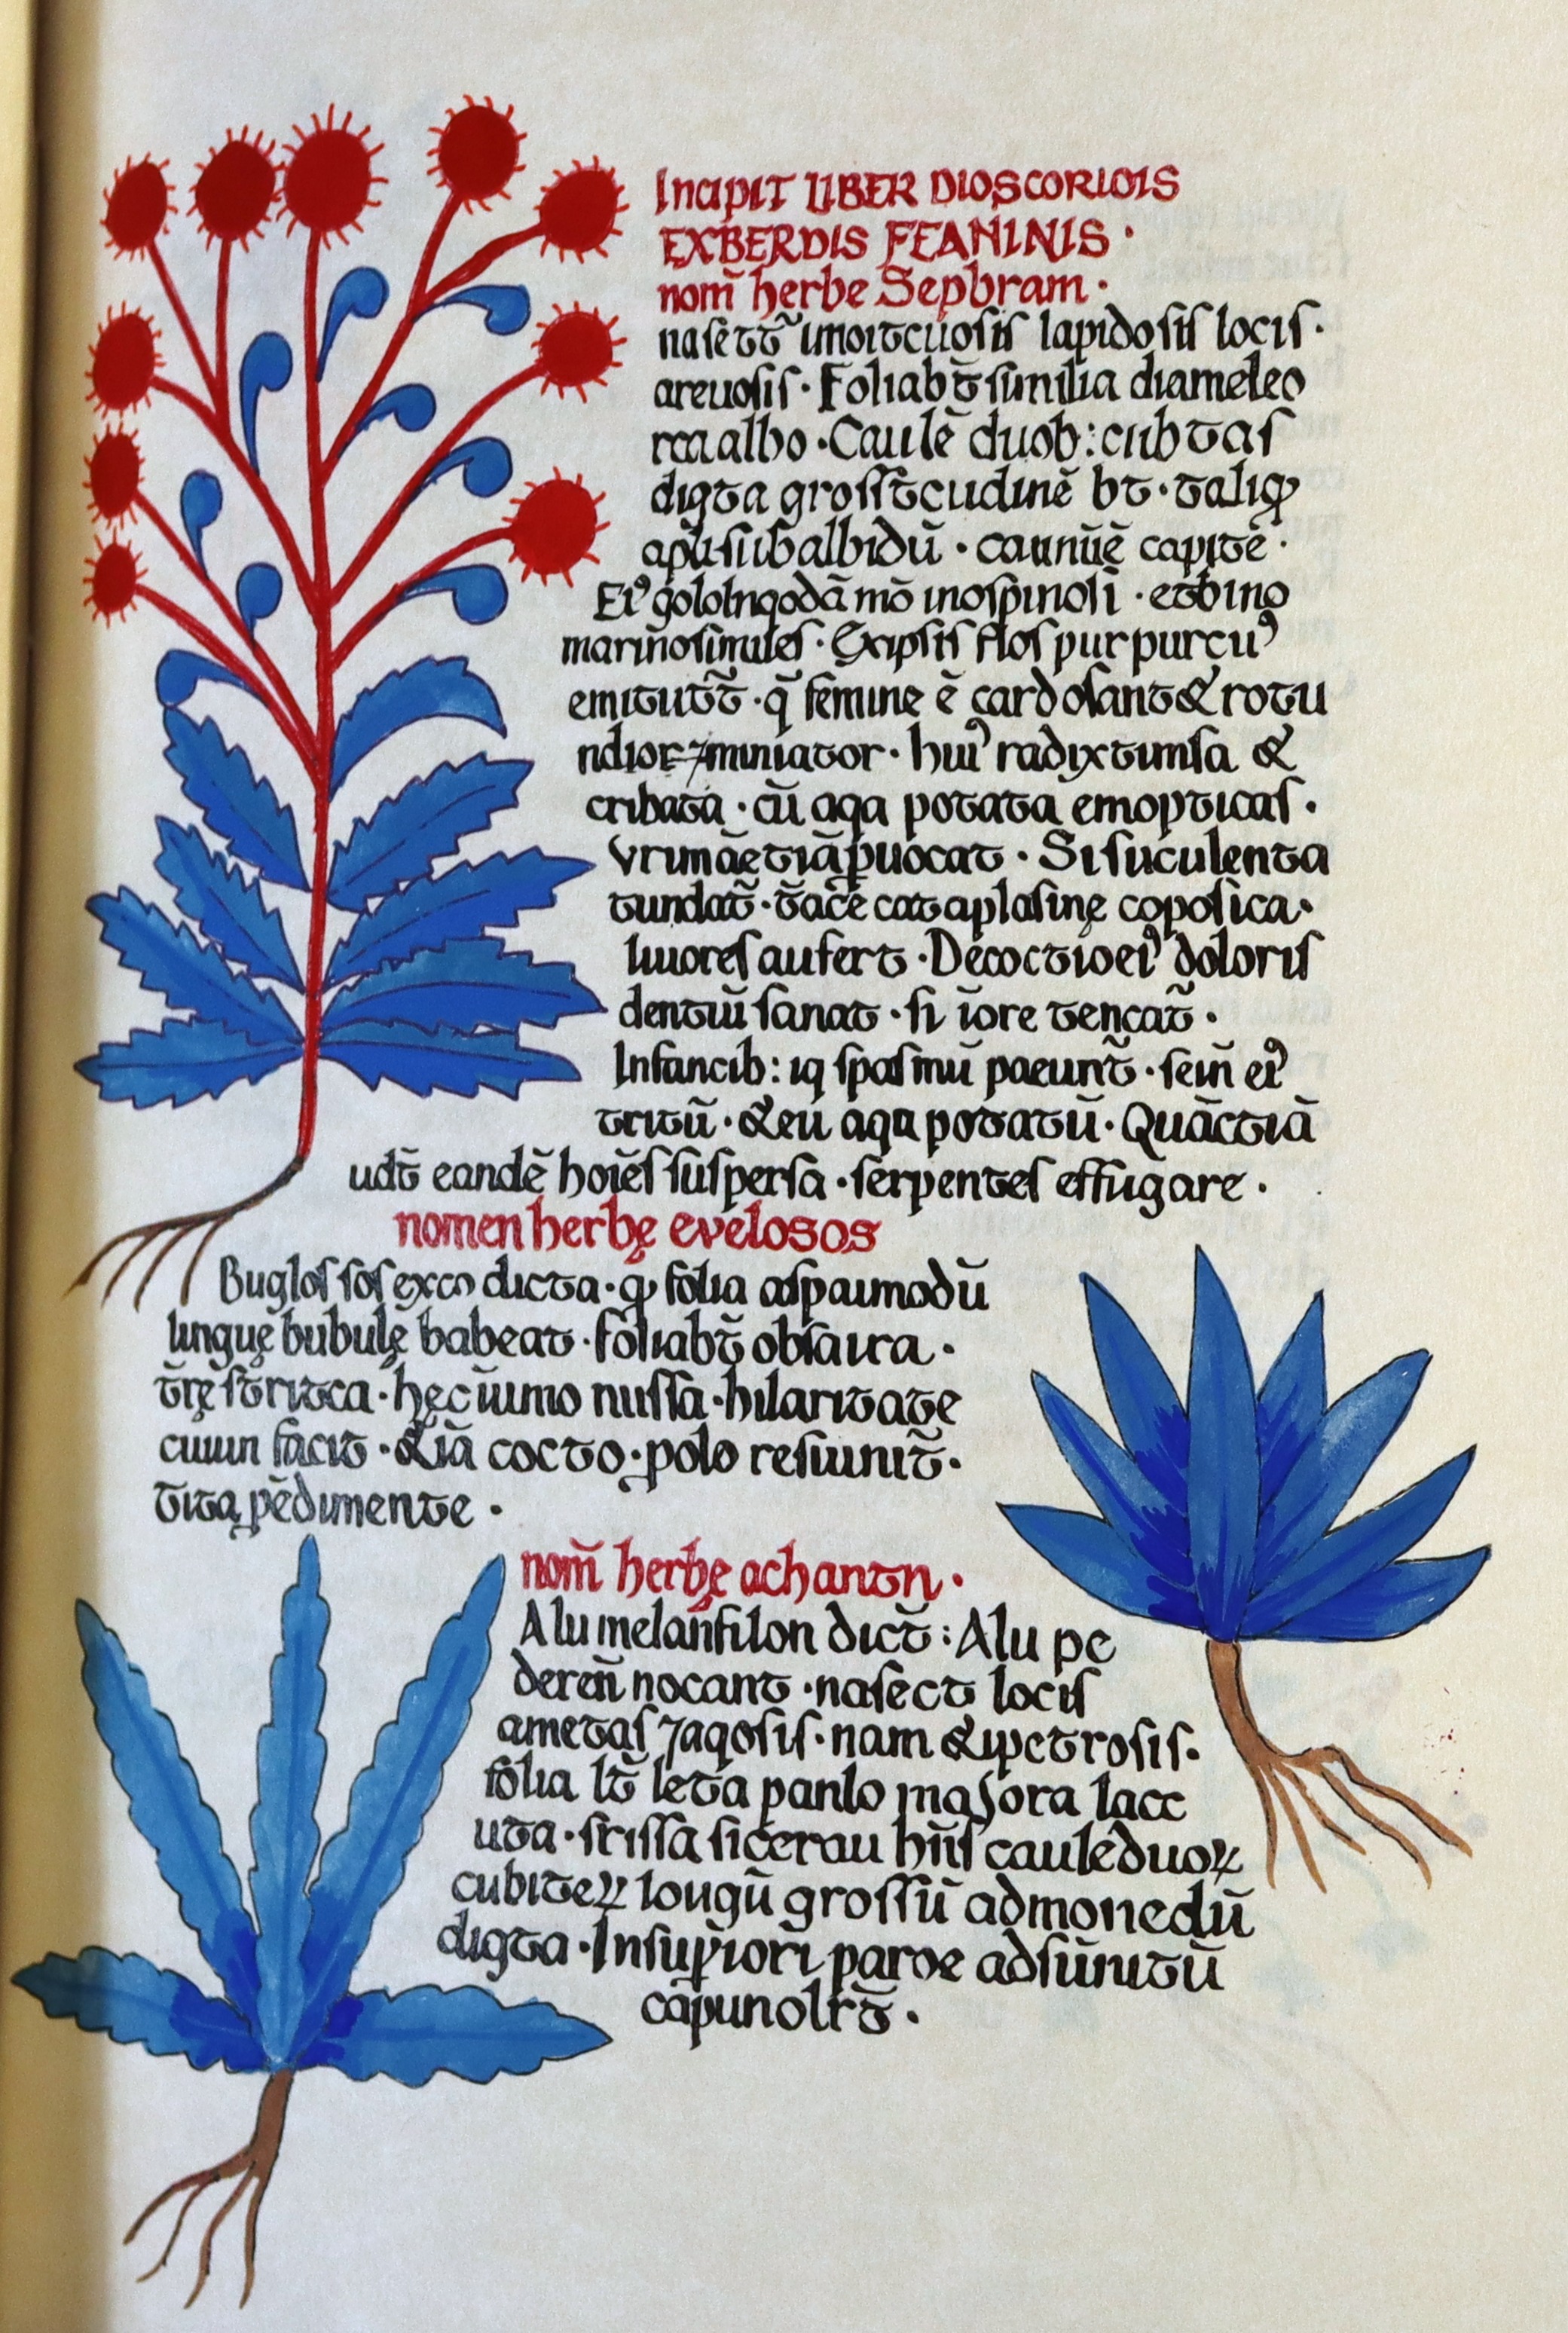 Incipit LIBER DIOSCORIDIS
EXBERDIS FEANINIS ·
nom̄ herbe Sepbram ·
lapidosis locis ·
areuosis · Foliab̄t similia diameleo
albo · Caulē duob: cubtas
digta grossĩcudinē bt · taliqꝫ
subalbidū · capitē ·
mō inospinosi · etbino
marinosimiles · Exipsis flos purpureuꝰ
emitutt̄ · q̄ femine ē cardosant & rotu
ndior miniator · huiꝰ radix tunsa &
cribata · cū aqa potata emopticas ·
vrimāetiāꝓuocat · Si suculenta
tundat̄ · cataplasinę coposica ·
liuores aufert · Decoctioeiꝰ doloris
dentiū sanat · si īore tencat̄ ·
Infancib: iq spasmū paeunt̄ · sem̄ eiꝰ
tritū · &eū aqa potatū · Quāctiā
udt̄ eandē hoiēs suspersa · serpentes effugare ·
nomen herbę evelosos
Buglossos exco dicta · qꝫ folia aspaimodū
linguę bubulę babeat · foliabt̄ obsaura ·
t̄rę stritca · hęc ūimo missa · hilaritate
facit · &iā cocto · polo resiunit̄ ·
tita pēdimente ·
nom̄ herbę achantn ·
Alu melanfilon dict̄ : Alu pe
deren̄ nocant · nasect locis
ametas ⁊aqosis · nam &ipetrosis ·
folia lt̄ leta panlo majora lacc
uta · srissa sicerau hīis caulēduoꝝ
cubiteꝝ lougū grossū admonedū
digta · Insup̄iori paroe adsūnitū
capunolrt̄ ·